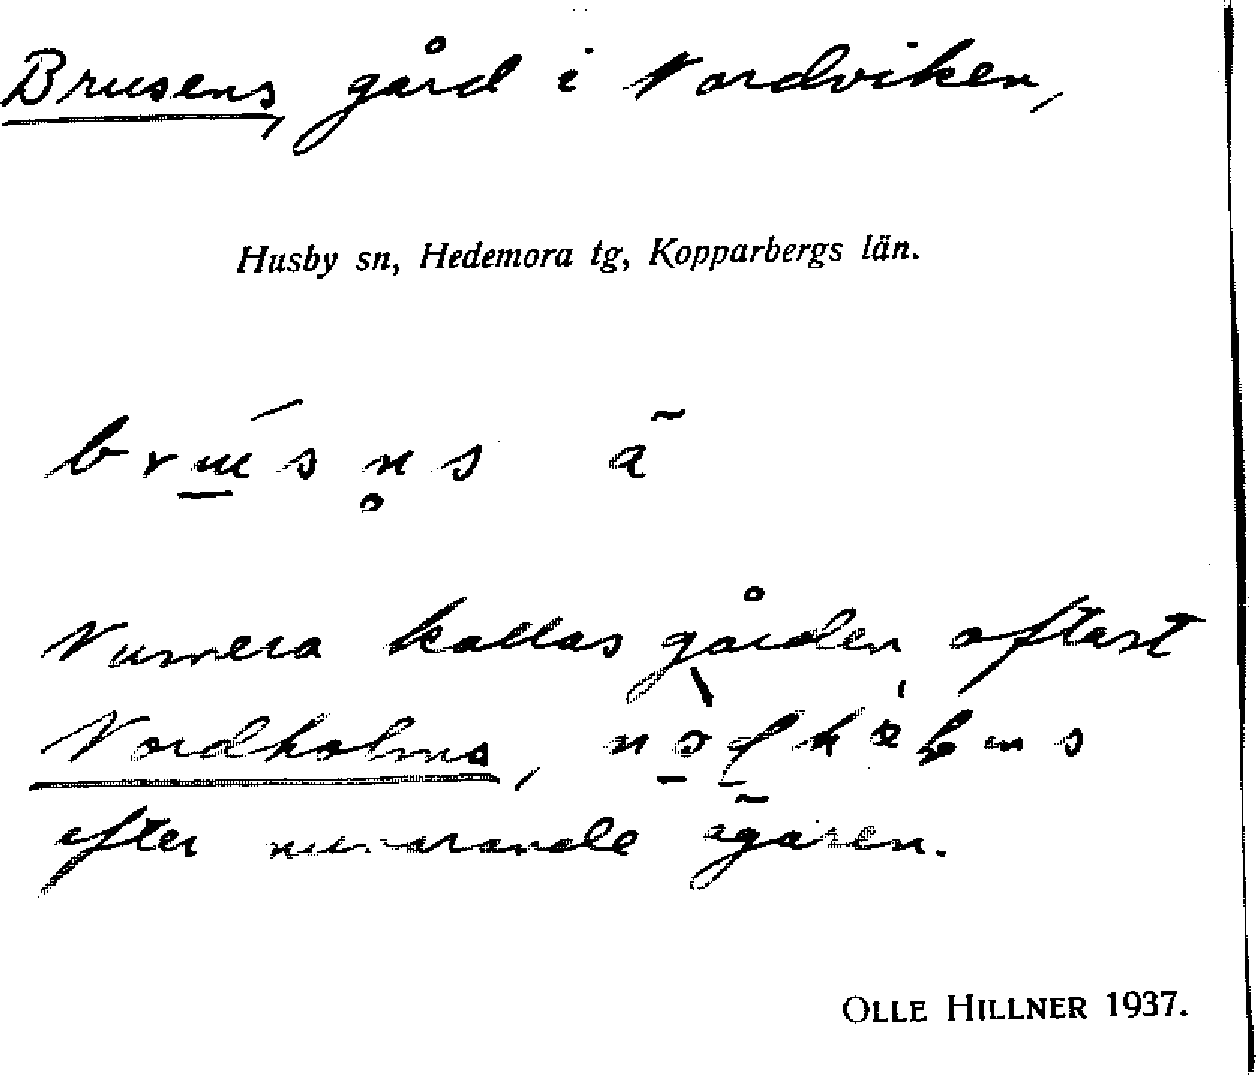 Brusens, gård i Nordviken,
Husby sn, Hedemora tg, Kopparbergs län.
Numera kallas gården oftast
Nordholms,
efter nuvarande ägaren.
OLLE HILLNER 1937.